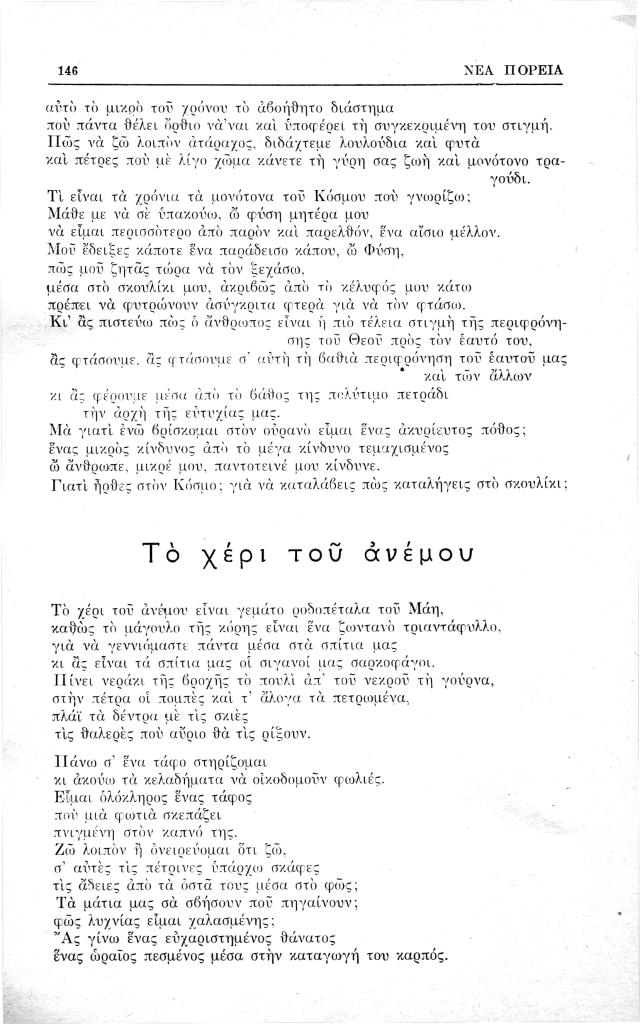 146
ΝΕΑ ΠΟΡΕΙΑ
αὐτὸ τὸ μικρὸ τοῦ χρόνου τὸ ἀβοήθητο διάστημα
ποὺ πάντα θέλει ὄρθιο νά 'ναι καὶ ὑποφέρει τὴ συγκεκριμένη του στιγμή.
Πῶς νὰ ζῶ λοιπὸν ἀτάραχος, διδάχτεμε λουλούδια καὶ φυτὰ
καὶ πέτρες ποὺ μὲ λίγο χῶμα κάνετε τὴ γύρη σας ζωὴ καὶ μονότονο τρα-
γούδι.
Τὶ εἶναι τὰ χρόνια τὰ μονότονα τοῦ Κόσμου ποὺ γνωρίζω;
Μάθε με νὰ σὲ ὑπακούω, ὦ φύση μητέρα μου
νὰ εἶμαι περισσότερο ἀπὸ παρὸν καὶ παρελθόν, ἕνα αἴσιο μέλλον.
Μοῦ ἔδειξες κάποτε ἕνα παράδεισο κάπου, ὦ Φύση,
πῶς μοῦ ζητᾶς τώρα νὰ τὸν ξεχάσω,
μέσα στὸ σκουλίκι μου, ἀκριβῶς ἀπὸ τὸ κέλυφός μου κάτω
πρέπει νὰ φυτρώνουν ἀσύγκριτα φτερὰ γιὰ νὰ τὸν φτάσω.
Κι' ἂς πιστεύω πὼς ὁ ἄνθρωπος εἶναι ἡ πιὸ τέλεια στιγμὴ τῆς περιφρόνη-
σης τοῦ Θεοῦ πρὸς τὸν ἑαυτό του,
ἂς φτάσουμε, ἂς φτάσουμε σ' αὐτὴ τὴ βαθιὰ περιφρόνηση τοῦ ἑαυτοῦ μας
καὶ τῶν ἄλλων
κι ἂς φέρουμε μέσα ἀπὸ τὸ βάθος της πολύτιμο πετράδι
τὴν ἀρχὴ τῆς εὐτυχίας μας.
Μὰ γιατὶ ἐνῶ βρίσκομαι στὸν οὐρανὸ εἶμαι ἕνας ἀκυρίευτος πόθος;
ἕνας μικρὸς κίνδυνος ἀπὸ τὸ μέγα κίνδυνο τεμαχισμένος
ὦ ἄνθρωπε, μικρέ μου, παντοτεινέ μου κίνδυνε.
Γιατὶ ἦρθες στὸν Κόσμο; γιὰ νὰ καταλάβεις πὼς καταλήγεις στὸ σκουλίκι;
Τὸ χέρι τοῦ ἀνέμου
Τὸ χέρι τοῦ ἀνέμου εἶναι γεμάτο ροδοπέταλα τοῦ Μάη,
καθὼς τὸ μάγουλο τῆς κόρης εἶναι ἕνα ζωντανὸ τριαντάφυλλο,
γιὰ νὰ γεννιόμαστε πάντα μέσα στὰ σπίτια μας
κι ἂς εἶναι τά σπίτια μας οἱ σιγανοί μας σαρκοφάγοι.
Πίνει νεράκι τῆς βροχῆς τὸ πουλὶ ἀπ' τοῦ νεκροῦ τὴ γούρνα,
στὴν πέτρα οἱ πομπὲς καὶ τ' ἄλογα τὰ πετρωμένα,
πλάϊ τὰ δέντρα μὲ τὶς σκιὲς
τὶς θαλερὲς ποὺ αὔριο θὰ τὶς ρίξουν.
Πάνω σ' ἕνα τάφο στηρίζομαι
κι ἀκούω τὰ κελαδήματα νὰ οἰκοδομοῦν φωλιές.
Εἶμαι ὁλόκληρος ἕνας τάφος
ποὺ μιὰ φωτιὰ σκεπάζει
πνιγμένη στὸν καπνό της.
Ζῶ λοιπὸν ἢ ὀνειρεύομαι ὅτι ζῶ,
σ' αὐτὲς τὶς πέτρινες ὑπάρχω σκάφες
τὶς ἄδειες ἀπὸ τὰ ὀστᾶ τους μέσα στὸ φῶς;
Τὰ μάτια μας σὰ σβήσουν ποῦ πηγαίνουν;
φῶς λυχνίας εἶμαι χαλασμένης;
Ἂς γίνω ἕνας εὐχαριστημένος θάνατος
ἕνας ὡραῖος πεσμένος μέσα στὴν καταγωγή του καρπός.